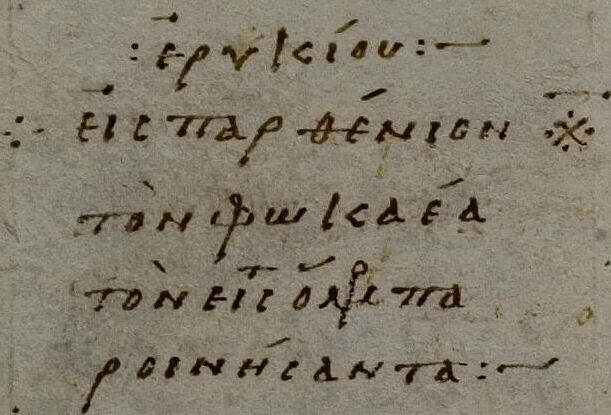 : ἐρυκίου :—
εἰς παρθένιον ※
τὸν φωκαέα
τὸν εἰς ὅμηρ πα
ροινήσαντα :—